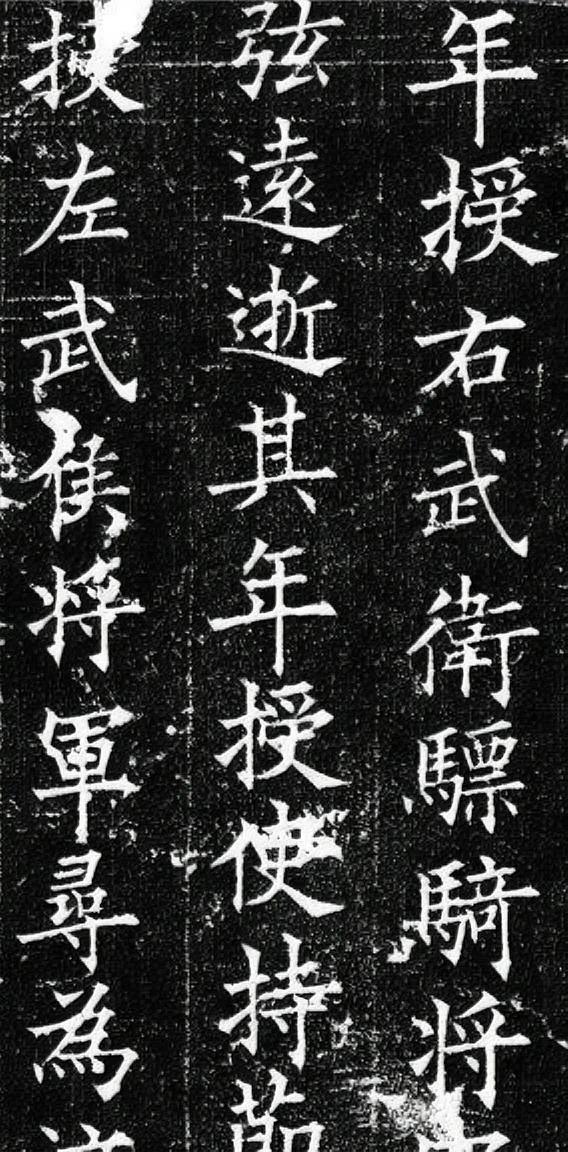 年授右武衛驃騎将軍
弦遠逝其年授使持節
授左武候将軍尋為